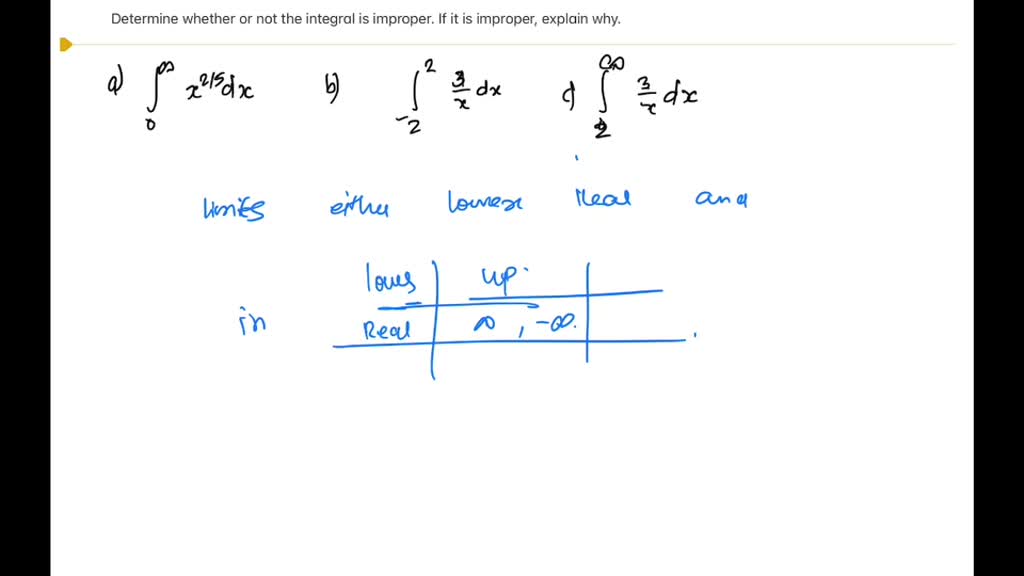 Determine whether or not the integral is improper. If it is improper, explain why.
a) ∫₀^∞ x^{2/5} dx b) ∫₋₂² 3/x dx c) ∫₂^∞ 3/x dx
limits either Real and
lower up.
in Real ∞, -∞.